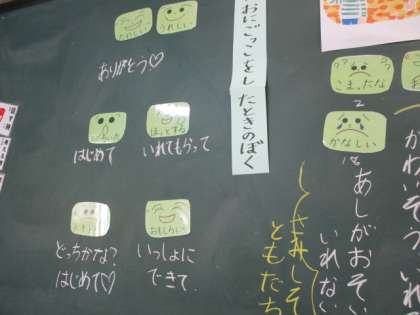 こまったな
2
かなしい
18
かわいそう、いれ
あしがおそい
いれない
さみしそ
ともだち
おにごっこをしたときのぼく
うれしい
ありがとう♡
ほっとする
はじめて
いれてもらって
おもしろい
どっちかな?
はじめて♡
いっしょに
できて.